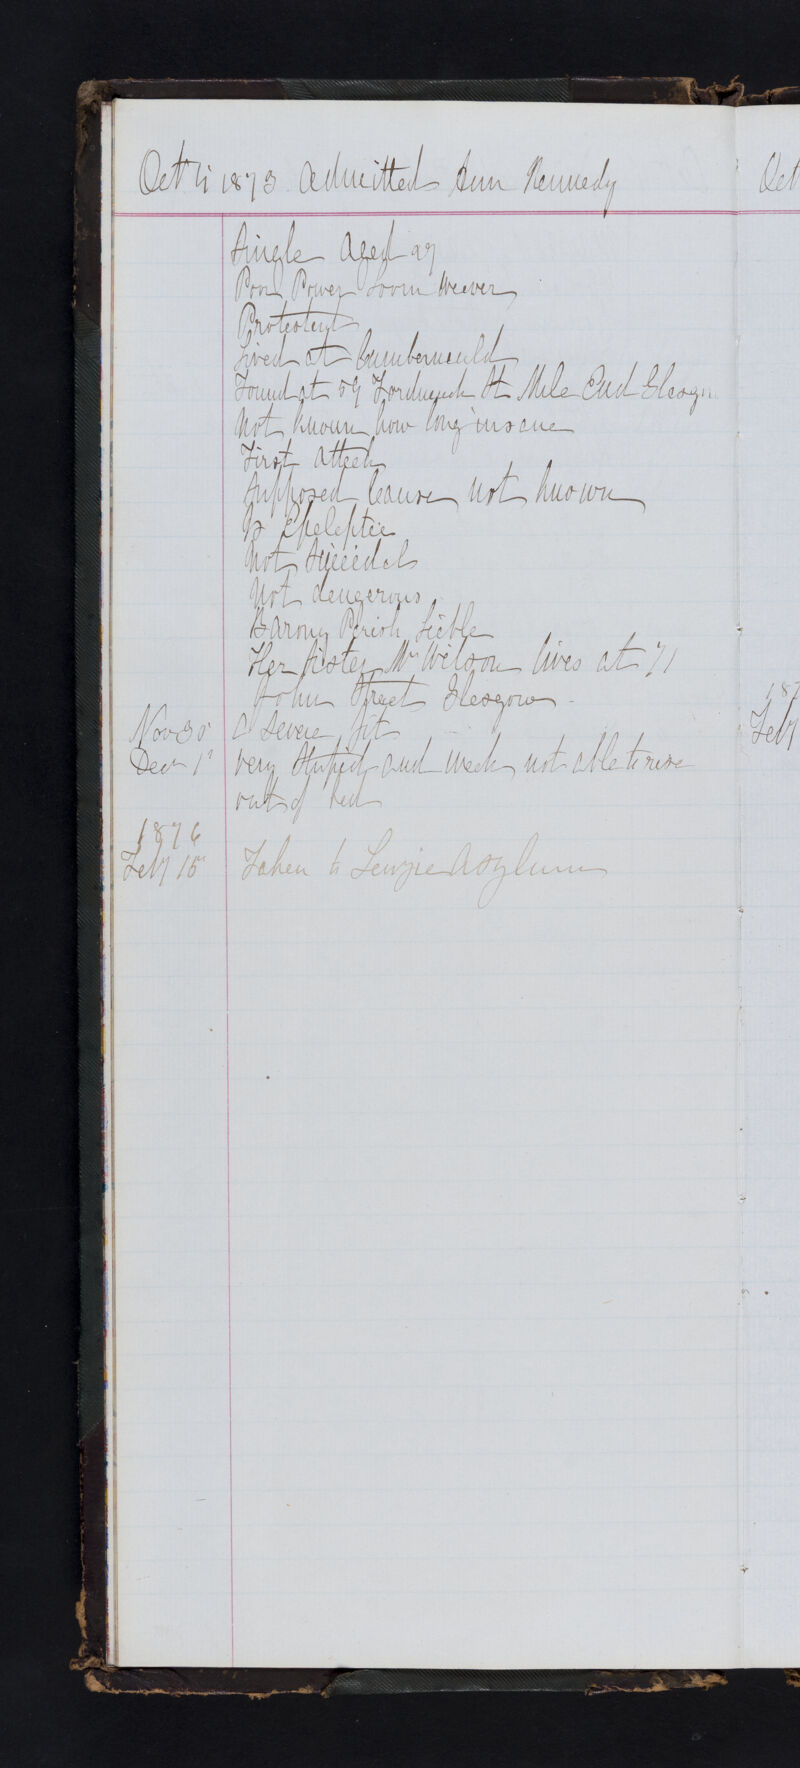 Oct 1873 Admitted Ann Kennedy
Oct
Single Aged 29
Poor Power Loom Weaver
Protestant
Lived at Cumbernauld
Found at 59 St Mile End Glasgow
Not known how long insane
First attack
Supposed Cause not known
Is Epeleptic
Not Suicidal
Not dangerous
Barony Parish Lieble
Her Sister Mrs Wilson lives at 71
John Street Glasgow
Nov 30 A Severe fit
Dec 1 very Stupid and Weak not able to rise
out of bed
1876
Feby 15 Taken to Lenzie Asylum
187
Feby